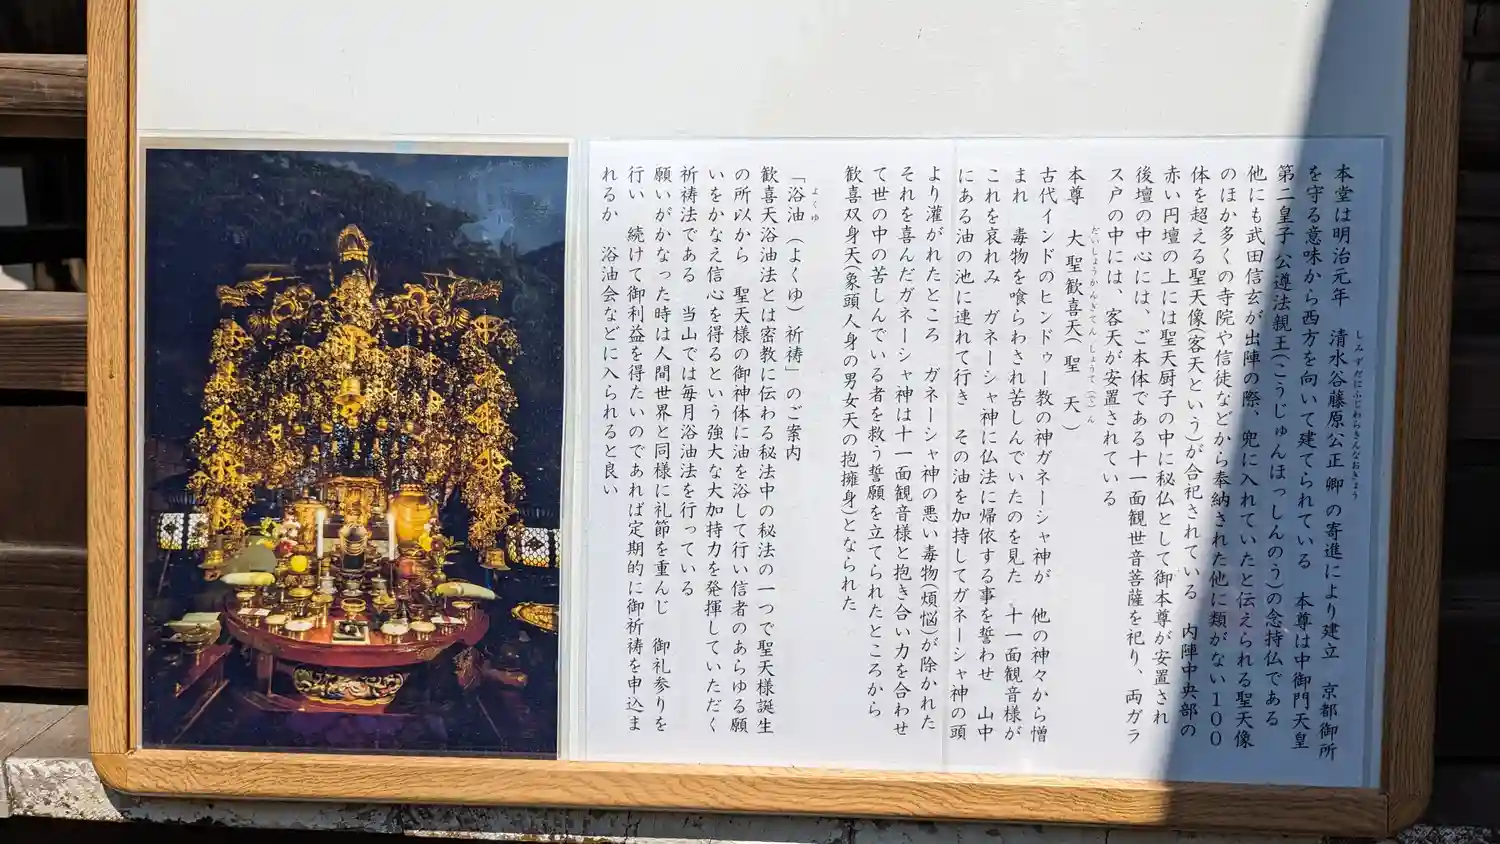 本堂は明治元年　清水谷藤原公正卿の寄進により建立　京都御所
しみずだにふじわらきんなおきょう
を守る意味から西方を向いて建てられている　本尊は中御門天皇
第二皇子 公遵法親王(こうじゅんほっしんのう)の念持仏である
他にも武田信玄が出陣の際、兜に入れていたと伝えられる聖天像
のほか多くの寺院や信徒などから奉納された他に類がない100
体を超える聖天像(客天という)が合祀されている　内陣中央部の
赤い円壇の上には聖天厨子の中に秘仏として御本尊が安置され
後壇の中心には、ご本体である十一面観世音菩薩を祀り、両ガラ
ス戸の中には、客天が安置されている
本尊　大聖歓喜天(聖　天)
だいしょうかんきてん しょうて(で)ん
古代インドのヒンドゥー教の神ガネーシャ神が　他の神々から憎
まれ　毒物を喰らわされ苦しんでいたのを見た　十一面観音様が
これを哀れみ　ガネーシャ神に仏法に帰依する事を誓わせ　山中
にある油の池に連れて行き　その油を加持してガネーシャ神の頭
より灌がれたところ　ガネーシャ神の悪い毒物(煩悩)が除かれた
それを喜んだガネーシャ神は十一面観音様と抱き合い力を合わせ
て世の中の苦しんでいる者を救う誓願を立てられたところから
歓喜双身天(象頭人身の男女天の抱擁身)となられた
「浴油（よくゆ）祈祷」のご案内
よくゆ
歓喜天浴油法とは密教に伝わる秘法中の秘法の一つで聖天様誕生
の所以から　聖天様の御神体に油を浴して行い信者のあらゆる願
いをかなえ信心を得るという強大な大加持力を発揮していただく
祈祷法である　当山では毎月浴油法を行っている
願いがかなった時は人間世界と同様に礼節を重んじ　御礼参りを
行い　続けて御利益を得たいのであれば定期的に御祈祷を申込ま
れるか　浴油会などに入られると良い